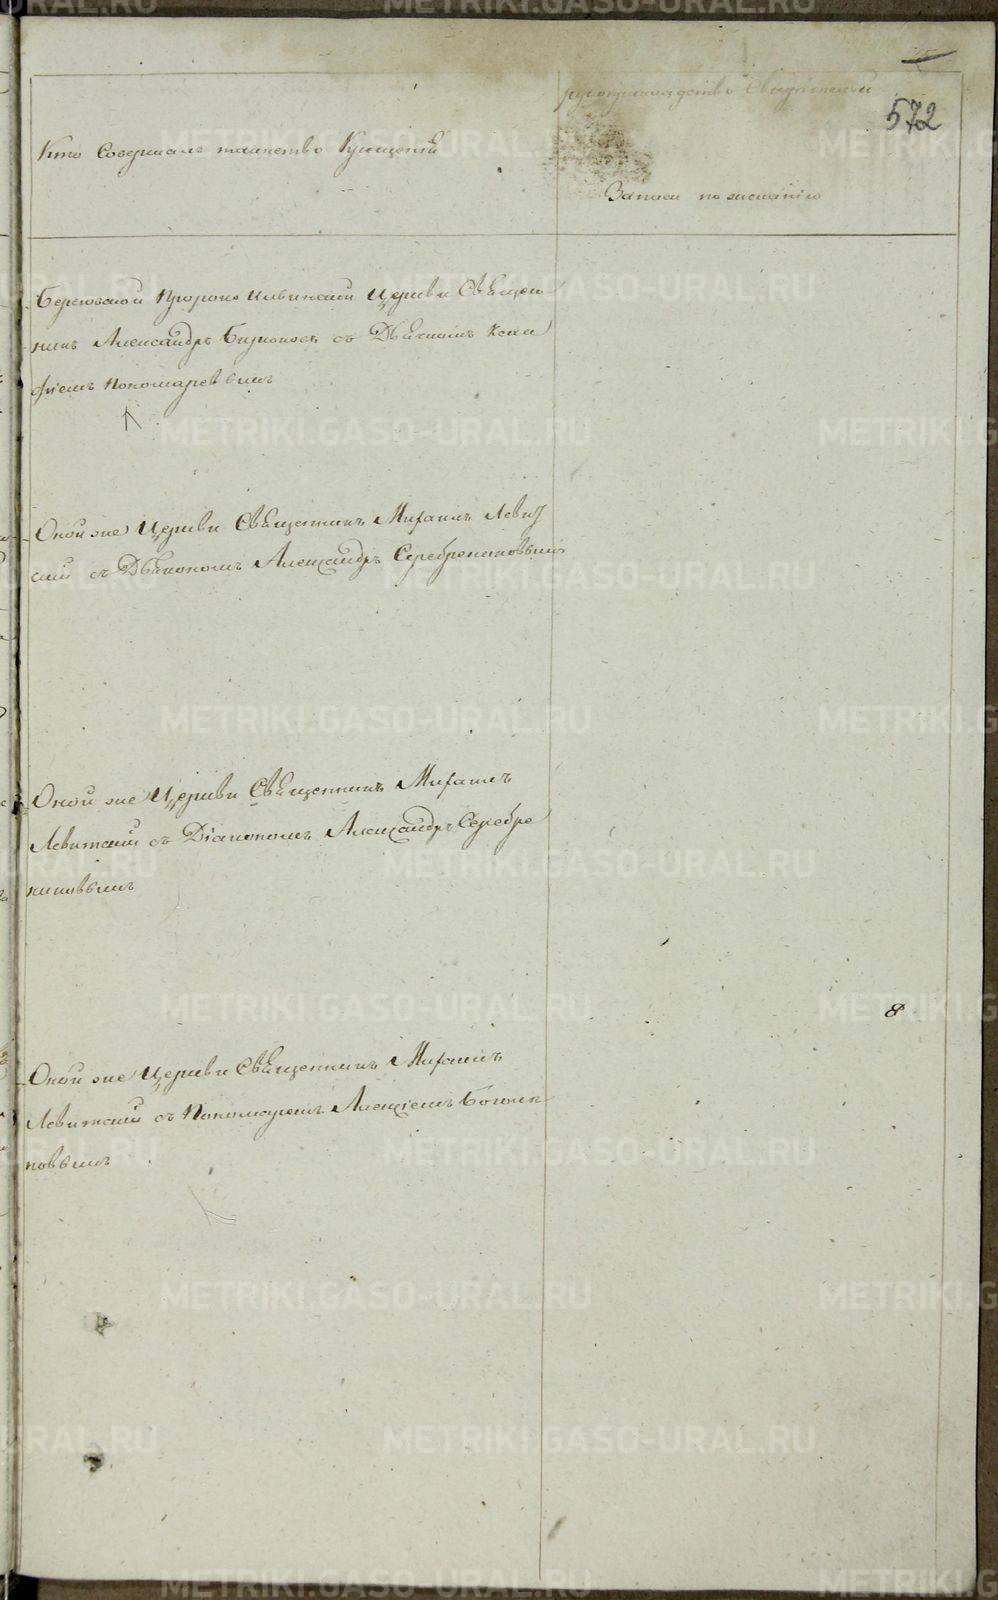 572
Кто совершалъ таинство Крещенія
рукоприкладство свидѣтелей
Запись по желанію
Пророко Ильинской Церкви Священ
никъ Александръ Бирюковъ съ Дьячкомъ
Пономаревымъ
Оной же Церкви Священникъ Михаилъ Левит
скій съ Діякономъ Александръ Серебрениковымъ
Оной же Церкви Священникъ Михаилъ
Левитскій съ Діакономъ Александръ Серебре
никовымъ
Оной же Церкви Священникъ Михаилъ
Левитскій съ Пономаремъ Алексіемъ
новымъ
METRIKI.GASO-URAL.RU